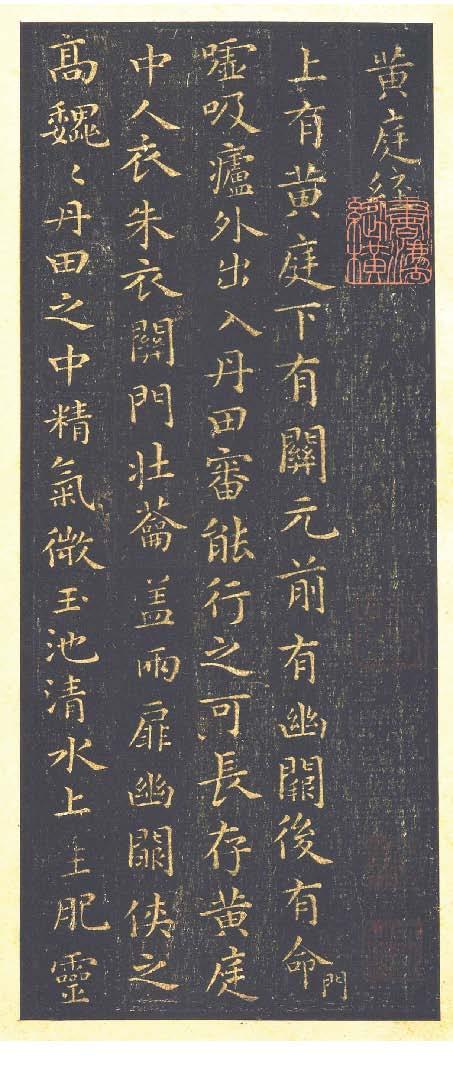 黄庭經
上有黄庭下有關元前有幽闕後有命門
嘘吸廬外出入丹田審能行之可長存黄庭
中人衣朱衣關門壮蘥盖兩扉幽闕俠之
高魏〻丹田之中精氣微玉池清水上生肥靈